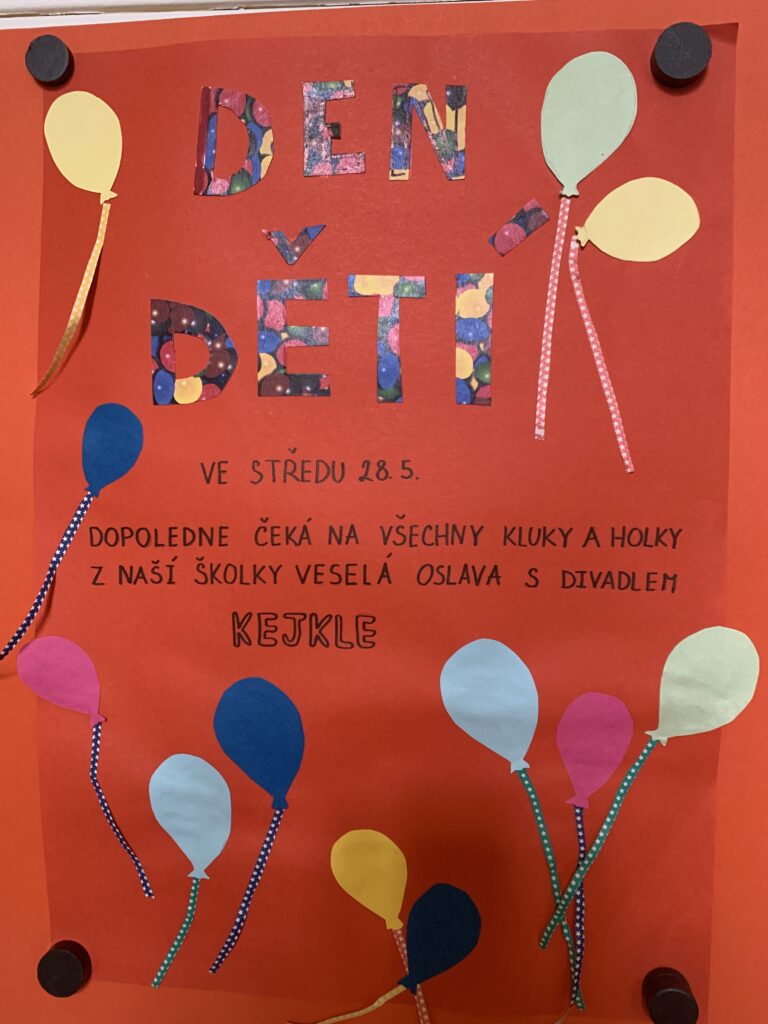 DEN
DĚTÍ
VE STŘEDU 28.5.
DOPOLEDNE ČEKÁ NA VŠECHNY KLUKY A HOLKY
Z NAŠÍ ŠKOLKY VESELÁ OSLAVA S DIVADLEM
KEJKLE